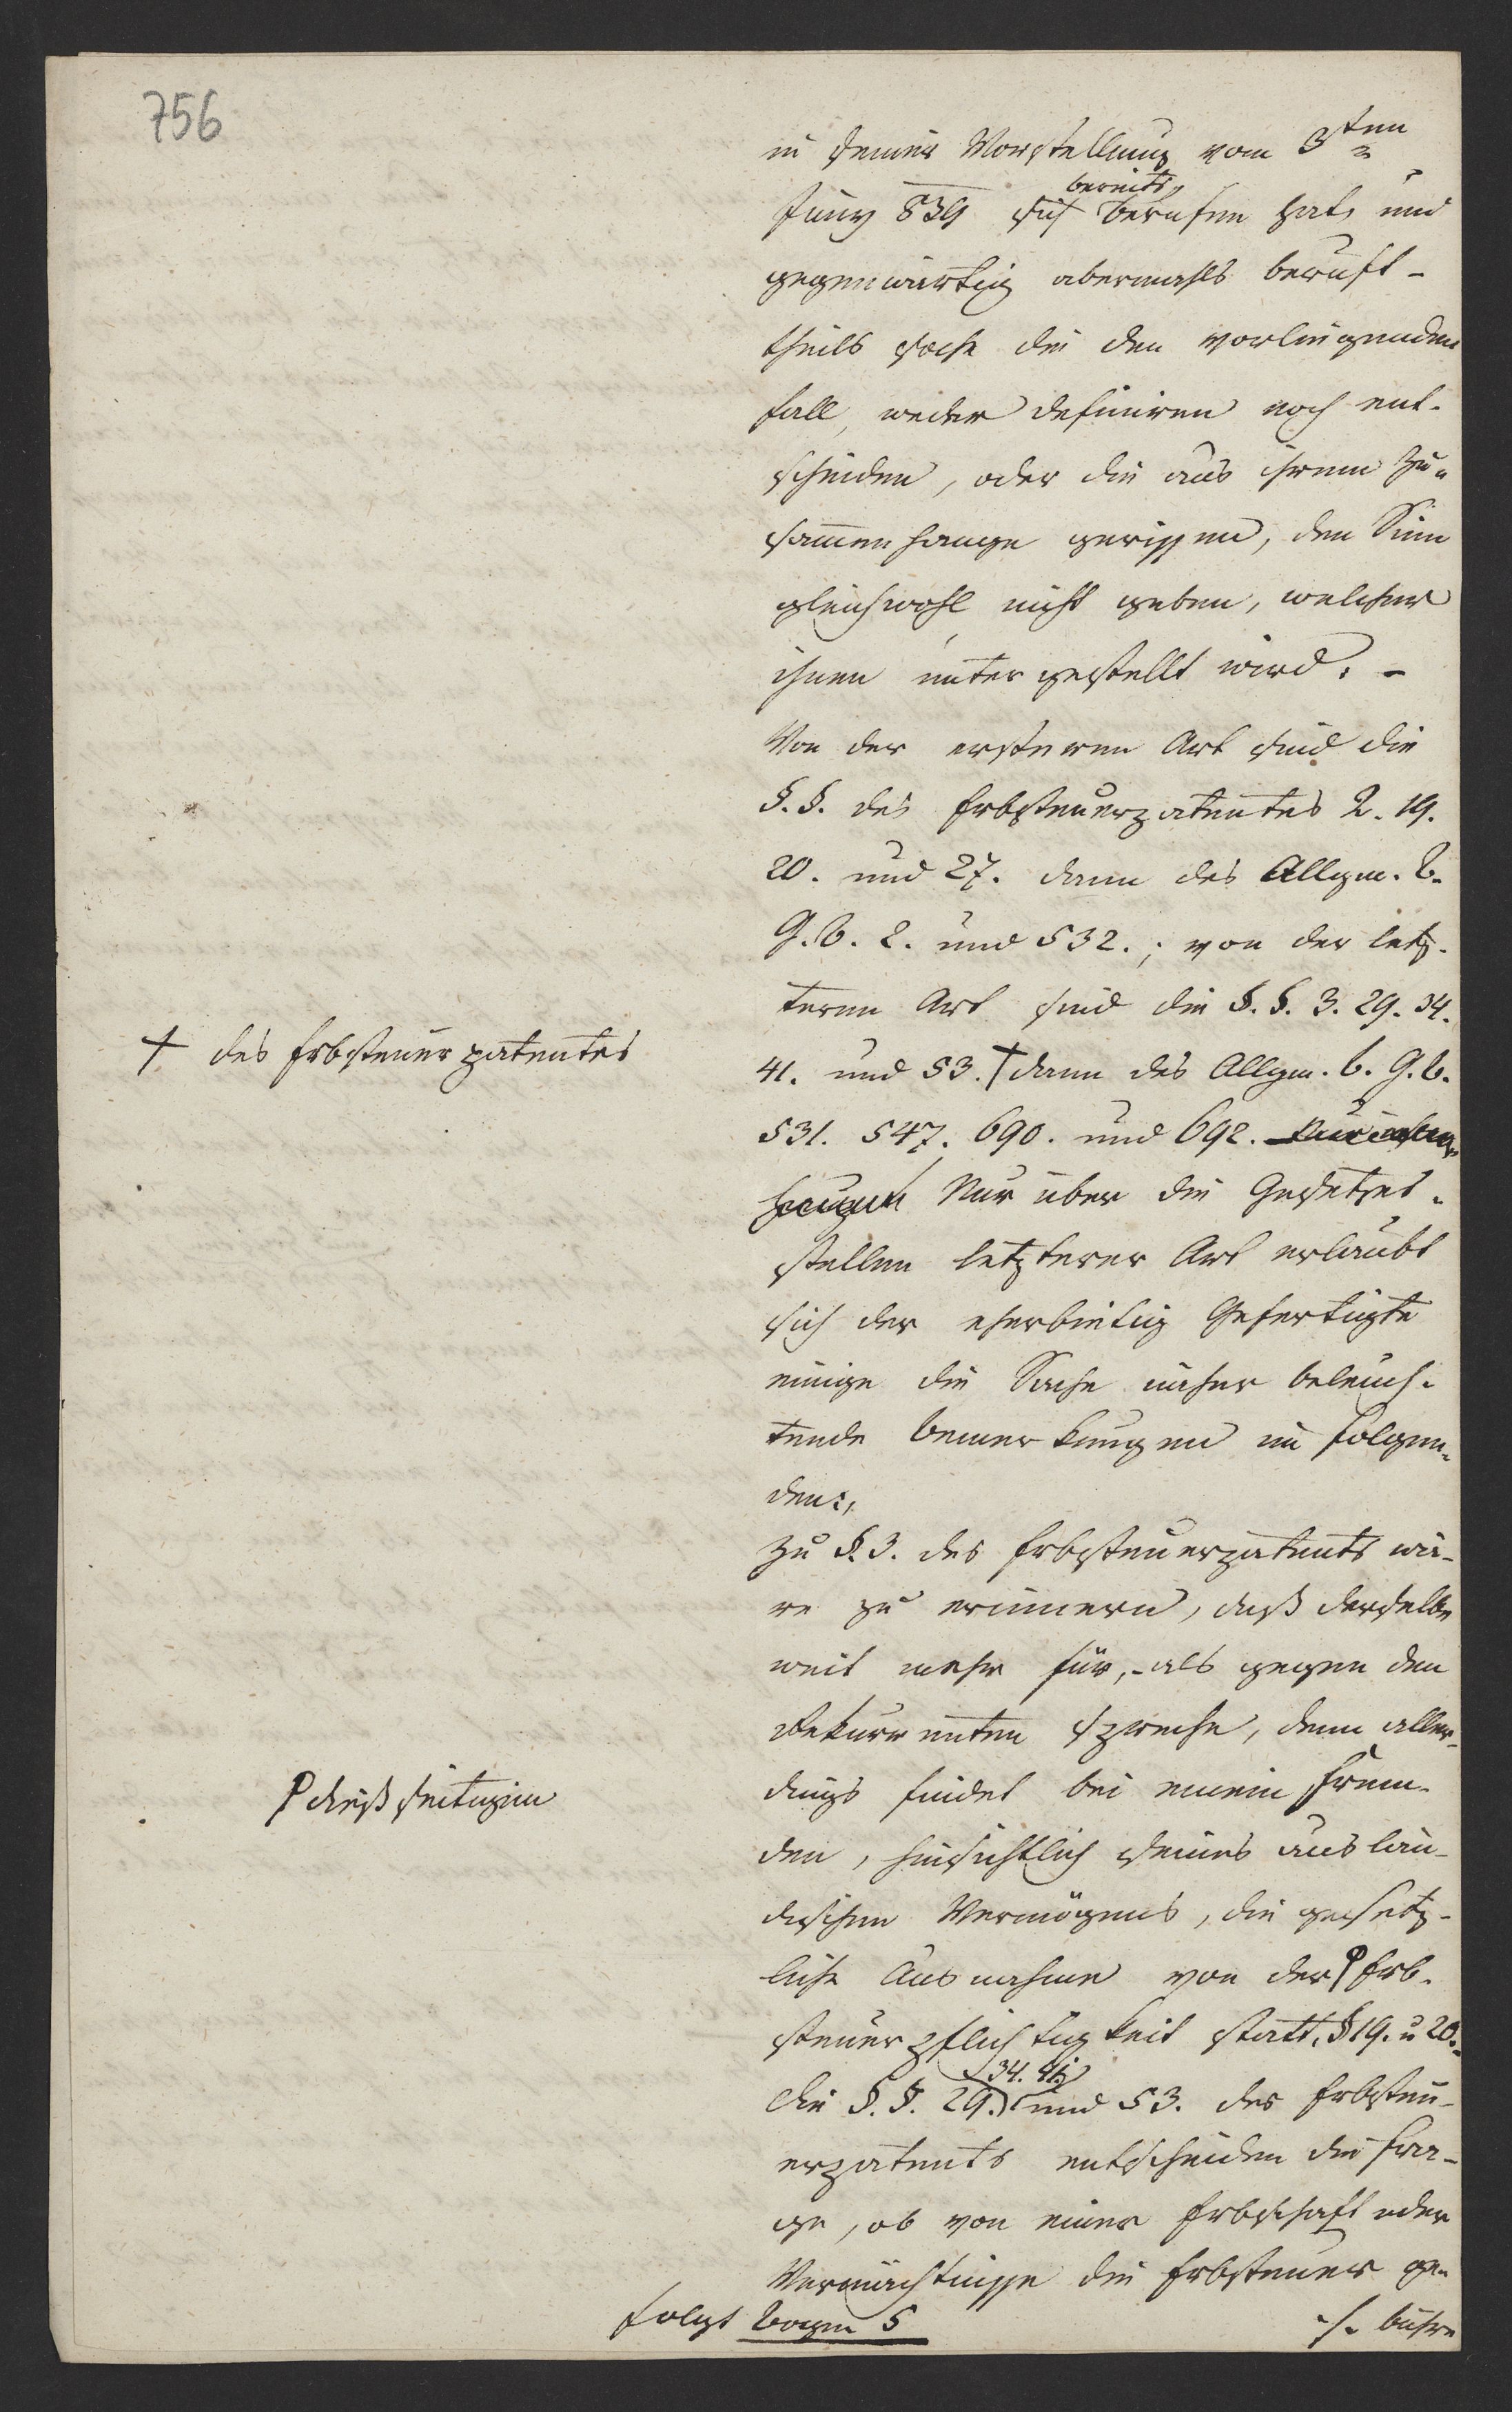 756
in seiner Vorstellung vom 3ten
bereits
Juny 839 sich berufen hat, und
gegenwärtig abermahls beruft -
theils solche die den vorliegenden
Fall, weder definiren noch ent-
scheiden, oder die aus ihrem Zu-
sammenhange gerissen, den Sinn
gleichwohl nicht geben, welcher
ihnen unterstellt wird. -
Von der ersteren Art sind die
§.§. des Erbsteuerpatentes 2. 19.
20. und 27. dann des Allgm. b.
G. b. 2. und 532.; von der letz-
teren Art sind die §.§. 3. 29. 34.
† des Erbsteuerpatentes
41. und 53. † dann des Allgm. b. G. b.
531. 547. 690. und 692.
Nur über die Gesetzes-
stellen letzterer Art erlaubt
sich der eherbietig Gefertigte
einige die Sache näher beleuch-
tende Bemerkungen im folgen-
den:,
Zu §. 3. des Erbsteuerpatents wä-
re zu erinnern, daß derselbe
weit mehr für, - als gegen den
Rekurrenten spreche, denn aller-
dings findet bei einem Frem-
dießseitigen
den, hinsichtlich seines auslän-
dischen Vermögens, die gesetz-
liche Ausnahme von der Erb-
steuerpflichtigkeit statt. § 19. u 20.
34. 41.
Die §.§. 29. und 53. des Erbsteu-
erpatents entscheiden die Fra-
ge, ob von einer Erbschaft oder
Vermächtnisse die Erbsteuer ge-
folgt Bogen 5
./. bühre